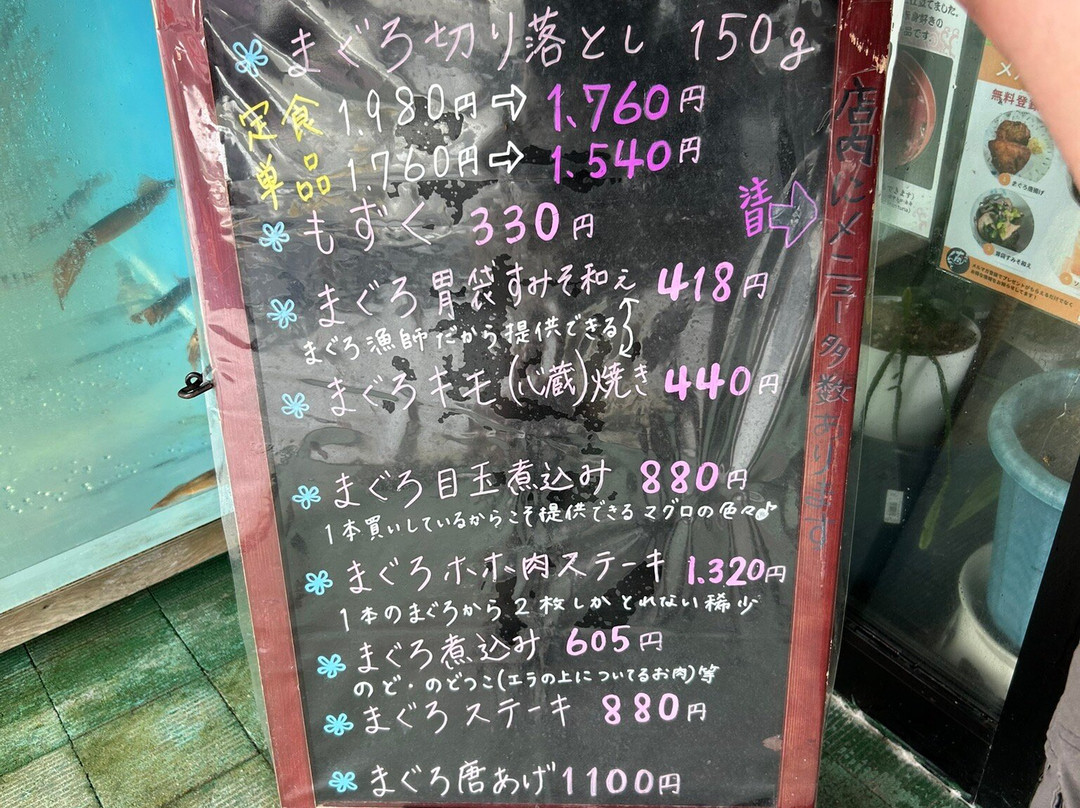 まぐろ切り落とし 150g
定食 1.980円⇨1.760円
単品 1.760円⇨1.540円
もずく 330円
注目
まぐろ胃袋すみそ和え 418円
まぐろ漁師だから提供できる
まぐろキモ(心蔵)焼き 440円
まぐろ目玉煮込み 880円
1本買いしているからこそ提供できるマグロの色々♪
まぐろホホ肉ステーキ 1.320円
1本のまぐろから2枚しかとれない稀少
まぐろ煮込み 605円
のど・のどつこ(エラの上についてるお肉)等
まぐろステーキ 880円
まぐろ唐あげ 1100円
店内にメニュー多数あります
無料登
まぐろ唐揚げ
胃袋すみそ和え